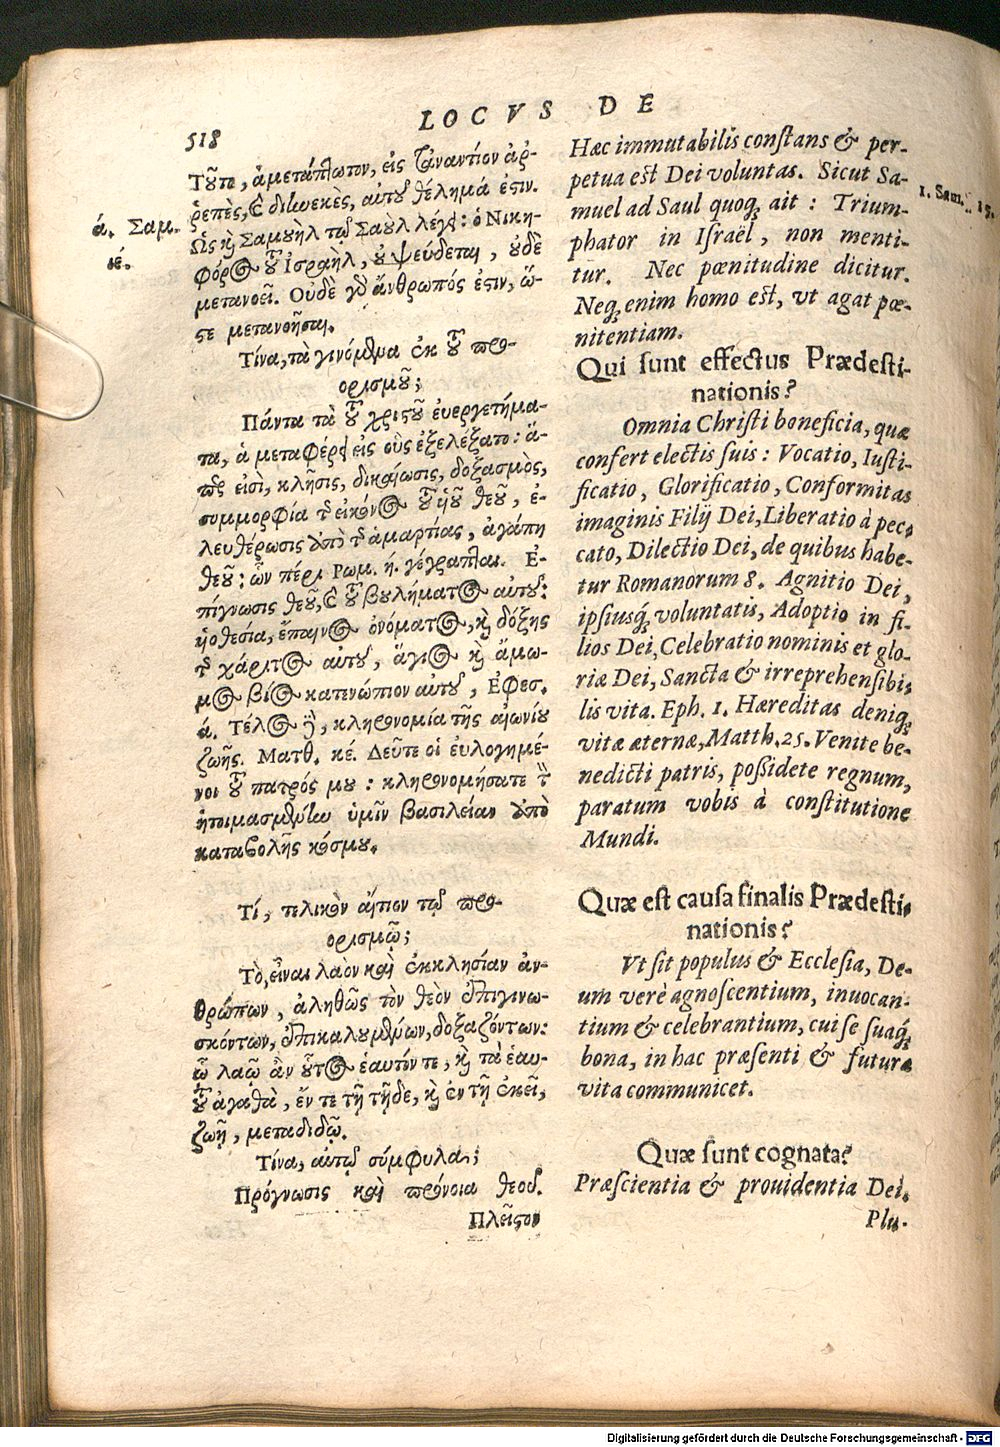 518
LOCVS DE
Τοῦτο, ἀμετάπτωτον, εἰς τἀναντίον ἀῤ-
ῥεπὲς, καὶ διηνεκὲς, αὐτοῦ θέλημά ἐστιν.
Ὡς καὶ Σαμουὴλ τῷ Σαοὺλ λέγει: ὁ Νικη-
φόρος τοῦ Ἰσραὴλ, οὐ ψεύδεται, οὐδὲ
μετανοεῖ. Οὐδὲ γὰρ ἄνθρωπός ἐστιν, ὥ-
στε μετανοῆσαι.
ά. Σαμ.
ιέ.
Τίνα, τὰ γινόμενα ἐκ τοῦ προ-
ορισμοῦ;
Πάντα τὰ τοῦ χριστοῦ ἐυεργετήμα-
τα, ἃ μεταφέρει εἰς οὓς ἐξελέξατο: ἅ-
τινα εἰσὶ, κλῆσις, δικαίωσις, δοξασμὸς,
συμμορφία τῆς εἰκόνος τοῦ ὑιοῦ θεοῦ, ἐ-
λευθέρωσις ἀπὸ τῆς ἁμαρτίας, ἀγάπη
θεοῦ: ὧν πέρι Ρωμ. ή. γέγραπται. Ἐ-
πίγνωσις θεοῦ, καὶ τοῦ βουλήματος αὐτοῦ:
ὑιοθεσία, ἔπαινος ὀνόματος, καὶ δόξης
τῆς χάριτος αὐτοῦ, ἅγιος καὶ ἄμω-
μος βίος κατενώπιον αὐτοῦ, Ἐφεσ.
ά. Τέλος δὲ, κληρονομία τῆς αἰωνίου
ζωῆς. Ματθ. κέ. Δεῦτε οἱ ἐυλογημέ-
νοι τοῦ πατρός μου: κληρονομήσατε τὴν
ἡτοιμασμένην ὑμῖν βασιλείαν ἀπὸ
καταβολῆς κόσμου.
Τί, τελικὸν αἴτιον τῷ προ-
ορισμῷ;
Τὸ, εἶναι λαὸν καὶ ἐκκλησίαν ἀν-
θρώπων, ἀληθῶς τὸν θεὸν ἐπιγινω-
σκόντων, ἐπικαλουμένων, δοξαζόντων:
ᾧ λαῷ ἂν οὗτος ἑαυτόν τε, καὶ τὰ ἑαυ-
τοῦ ἀγαθὰ, ἔν τε τῇ τῇδε, καὶ ἐν τῇ ἐκεῖ,
ζωῇ, μεταδιδῷ.
Τίνα, αὐτῷ σύμφυλα;
Πρόγνωσις καὶ πρόνοια θεοῦ.
Πλεῖστον
Hæc immutabilis constans & per-
petua est Dei voluntas. Sicut Sa-
muel ad Saul quoq; ait : Trium-
phator in Israël, non menti-
tur. Nec pœnitudine dicitur.
Neq; enim homo est, vt agat pœ-
nitentiam.
1. Sam. 15.
Qui sunt effectus Prædesti-
nationis?
Omnia Christi boneficia, quæ
confert electis suis : Vocatio, Iusti-
ficatio, Glorificatio, Conformitas
imaginis Filij Dei, Liberatio à pec-
cato, Dilectio Dei, de quibus habe-
tur Romanorum 8. Agnitio Dei,
ipsiusq; voluntatis, Adoptio in fi-
lios Dei, Celebratio nominis et glo-
riæ Dei, Sancta & irreprehensibi-
lis vita. Eph. 1. Hæreditas deniq;
vitæ æternæ, Matth. 25. Venite be-
nedicti patris, possidete regnum,
paratum vobis à constitutione
Mundi.
Quæ est causa finalis Prædesti-
nationis?
Vt sit populus & Ecclesia, De-
um verè agnoscentium, inuocan-
tium & celebrantium, cui se suaq́;
bona, in hac præsenti & futura
vita communicet.
Quæ sunt cognata?
Præscientia & prouidentia Dei.
Plu-
Digitalisierung gefördert durch die Deutsche Forschungsgemeinschaft - DFG